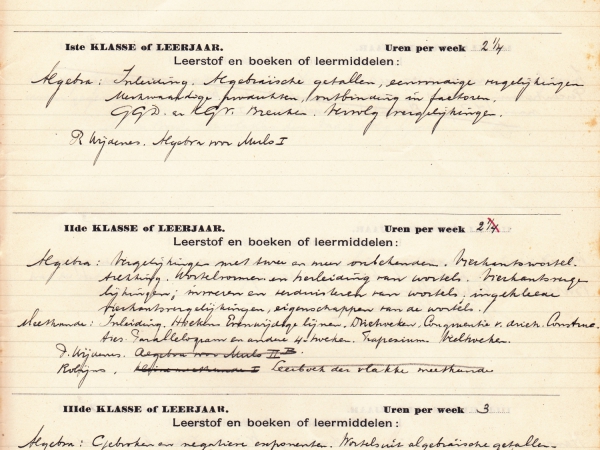 Iste KLASSE of LEERJAAR. Uren per week 2 1/4
Leerstof en boeken of leermiddelen:
Algebra: Inleiding. Algebraïsche getallen, eenvoudige vergelijkingen
Merkwaardige produkten, ontbinding in factoren.
GGD. en KGV. Breuken. Vervolg vergelijkingen.
P. Wijdenes. Algebra voor Mulo I
IIde KLASSE of LEERJAAR. Uren per week 2
Leerstof en boeken of leermiddelen:
Algebra: Vergelijkingen met twee en meer onbekenden. Vierkantswortel.
Wortelvormen en herleiding van wortels. Vierkantsverge
lijkingen; invoeren en verdrijven van wortels, ingekleede
vierkantsvergelijkingen, eigenschappen van de wortels.
Meetkunde: Inleiding. Hoeken Evenwijdige lijnen. Driehoeken. Congruentie v. drieh. Construc
ties. Parallelogram en andere 4-hoeken. Trapezium. Veelhoeken.
P. Wijdenes. Algebra voor Mulo II B.
Leerboek der vlakke meetkunde
IIIde KLASSE of LEERJAAR. Uren per week 3
Leerstof en boeken of leermiddelen:
Algebra: Gebroken en negatieve exponenten. Wortels uit algebraïsche getallen.